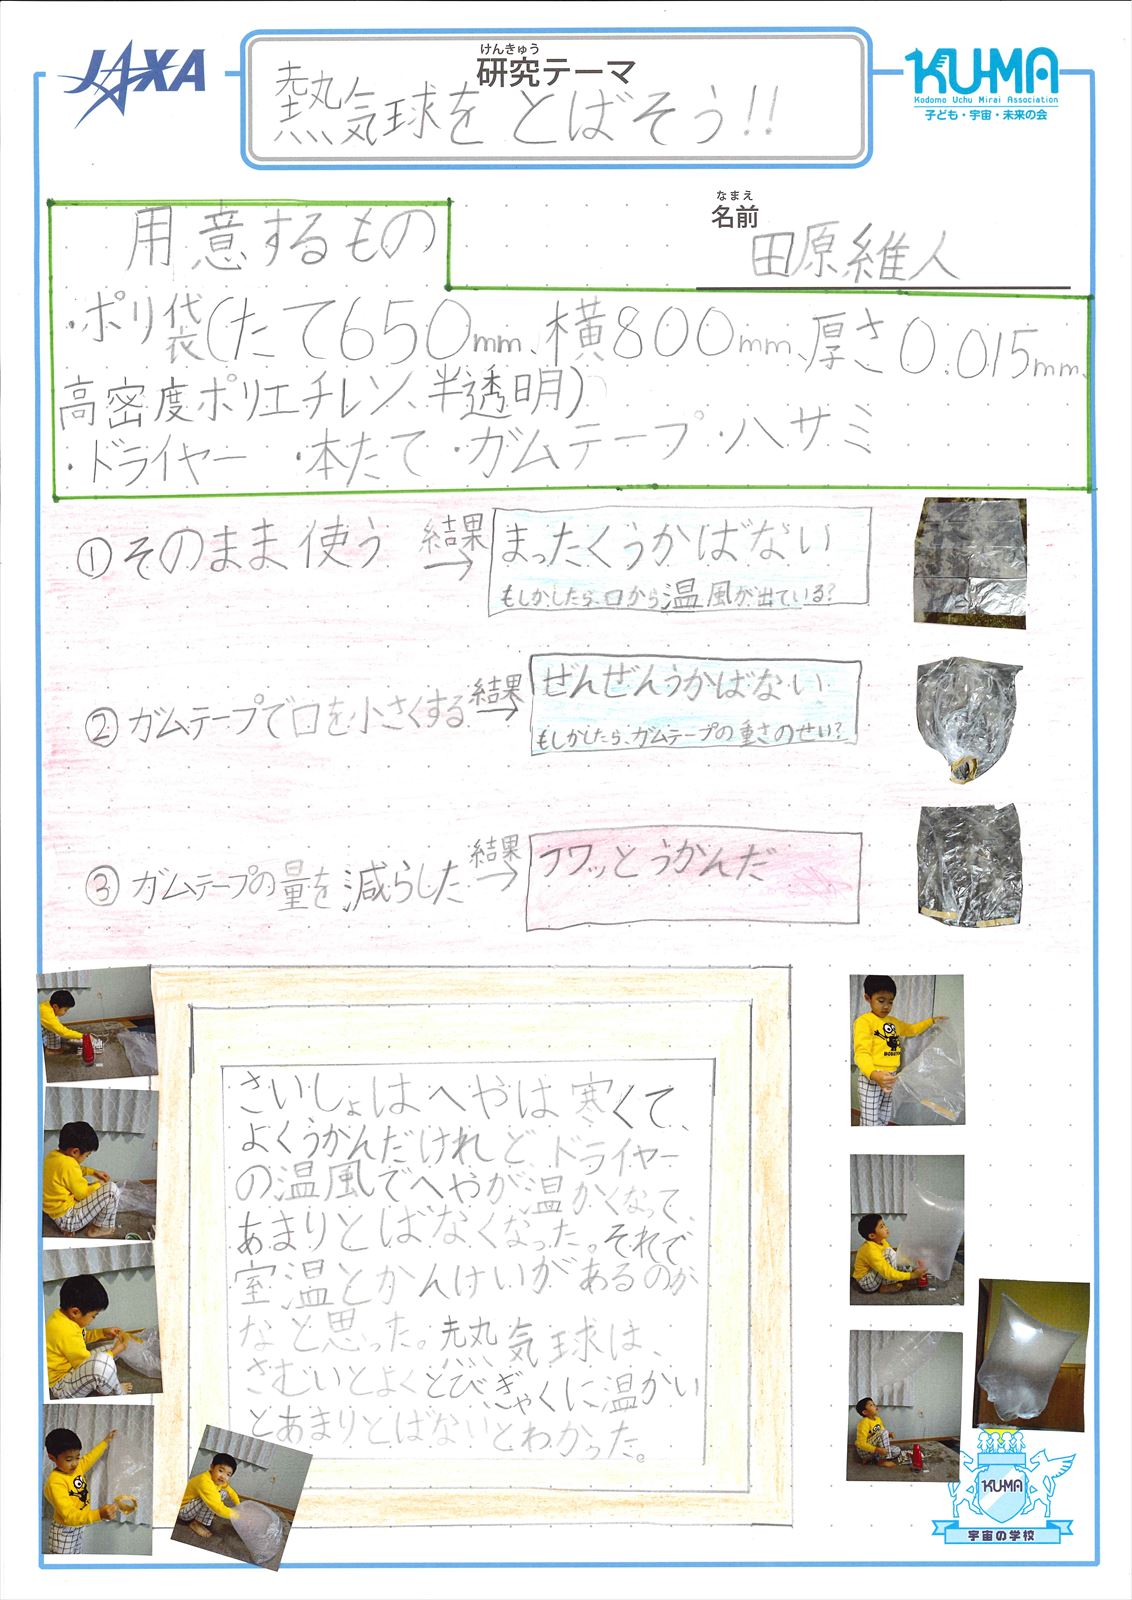 JAXA
けんきゅう
研究テーマ
熱気球をとばそう!!
KU-MA
Kodomo Uchu Mirai Association
子ども・宇宙・未来の会
なまえ
名前
田原維人
用意するもの
・ポリ袋(たて650mm、横800mm、厚さ0.015mm、
高密度ポリエチレン、半透明)
・ドライヤー ・本たて ・ガムテープ ・ハサミ
①そのまま使う 結果→ まったくうかばない
もしかしたら、口から温風が出ている?
②ガムテープで口を小さくする 結果→ ぜんぜんうかばない
もしかしたら、ガムテープの重さのせい?
③ガムテープの量を減らした 結果→ フワッとうかんだ
さいしょはへやは寒くて、
よくうかんだけれどドライヤー
の温風でへやが温かくなって、
あまりとばなくなった。それで
室温とかんけいがあるのか
なと思った。熱気球は、
さむいとよくとびぎゃくに温かい
とあまりとばないとわかった。
KU-MA
宇宙の学校